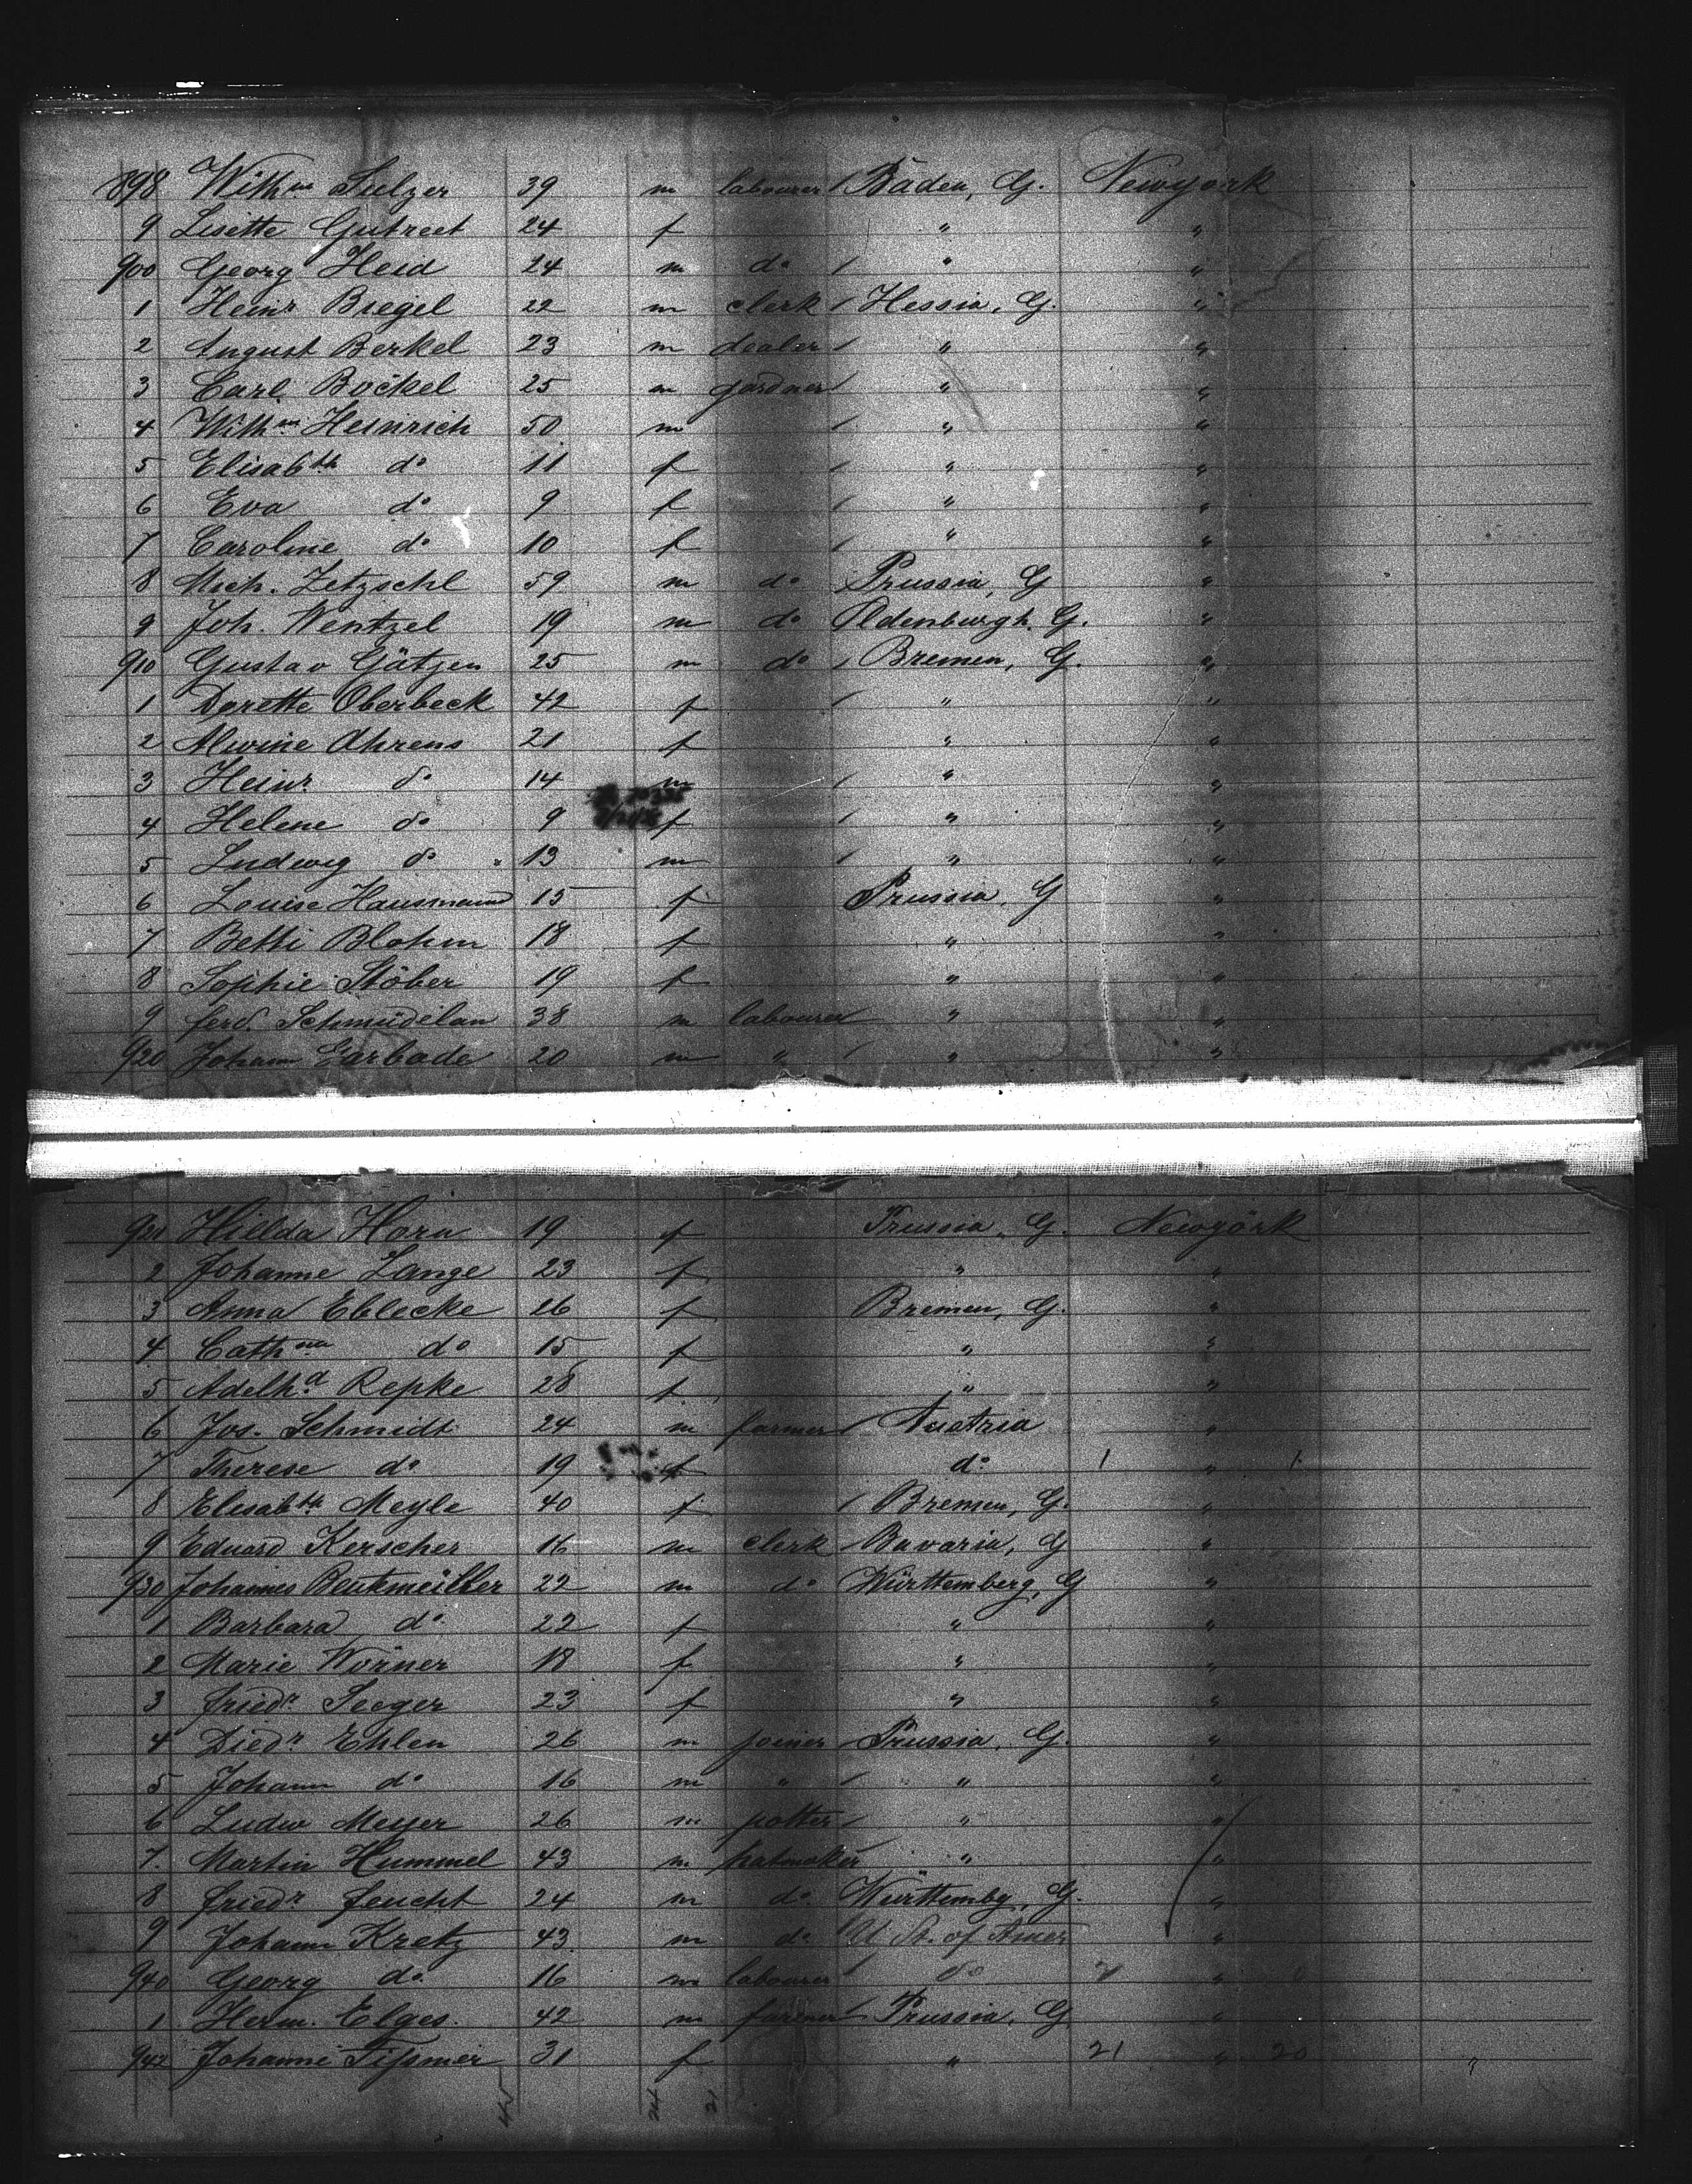 898 Wilhm Sulzer 39 m labourer Baden, G. Newyork
9 Lisette Gutreet 24 f " "
900 Georg Heid 24 m do " "
1 Heinr Biegel 22 m clerk Hessia, G. "
2 August Berkel 23 m dealer " "
3 Carl Bockel 25 m gardner " "
4 Wilhm Heinrich 50 m " "
5 Elisabth do 11 f " "
6 Eva do 9 f " "
7 Caroline do 10 f " "
8 Mich. Zetzschl 59 m do Prussia, G "
9 Joh. Wentzel 19 m do Oldenburgh. G. "
910 Gustav Götzen 25 m do Bremen, G. "
1 Dorette Oberbeck 42 f " "
2 Alwine Ahrens 21 f " "
3 Heinr do 14 m " "
4 Helene do 9 f " "
5 Ludwig do 13 m " "
6 Louise Hausmann 15 f Prussia, G "
7 Betti Blohm 18 f " "
8 Sophie Stöber 19 f " "
9 ferd. Schmüdilan 38 m labourer " "
920 Johann Garbade 20 m " " "
921 Hillda Horn 19 f Prussia, G. Newyörk
2 Johanne Lange 23 f " "
3 Anna Eblecke 26 f Bremen, G. "
4 Cathna do 15 f " "
5 Adelhd Repke 28 f " "
6 Jos. Schmidt 24 m farmer Austria "
7 Therese do 19 f do 1 " 1
8 Elisabth Meyle 40 f Bremen, G. "
9 Eduard Kerscher 16 m clerk Bavaria, G "
930 Johannes Beutmüller 22 m do Württemberg, G "
1 Barbara do 22 f " "
2 Marie Wörner 18 f " "
3 friedr Seeger 23 f " "
4 Diedr Ehlen 26 m joiner Prussia, G. "
5 Johann do 16 m " " "
6 Ludw Meyer 26 m potter " "
7. Martin Hummel 43 m hatmaker " "
8 friedr feucht 24 m do Württembg, G. "
9 Johann Kretz 43 m do U St. of Amer "
940 Georg do 16 m labourer do "
1 Herm. Elges 42 m farmer Prussia, G "
942 Johanne Tißmer 31 f " 21 " 20 "
45 24 21